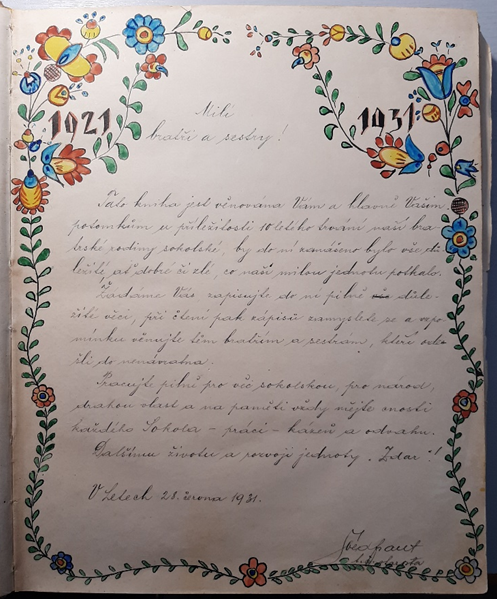 1921
1931
Milí
bratři a sestry!
Tato kniha jest věnována Vám a hlavně Vašim
potomkům u příležitosti 10 letého trvání naší bra
trské rodiny sokolské, by do ní zanášeno bylo vše dů
ležité, ať dobré či zlé, co naši milou jednotu potkalo.
Žádáme Vás zapisujte do ní pilně důle-
žité věci, při čtení pak zápisů zamyslete se a vzpo
mínku věnujte těm bratřím a sestrám, kteří ode
šli do nenávratna.
Pracujte pilně pro věc sokolskou, pro národ,
drahou vlast a na paměti vždy mějte ctnosti
každého Sokola - práci - kázeň a odvahu.
Dalšímu životu a rozvoji jednoty "Zdar"!
V Letech 28. června 1931.